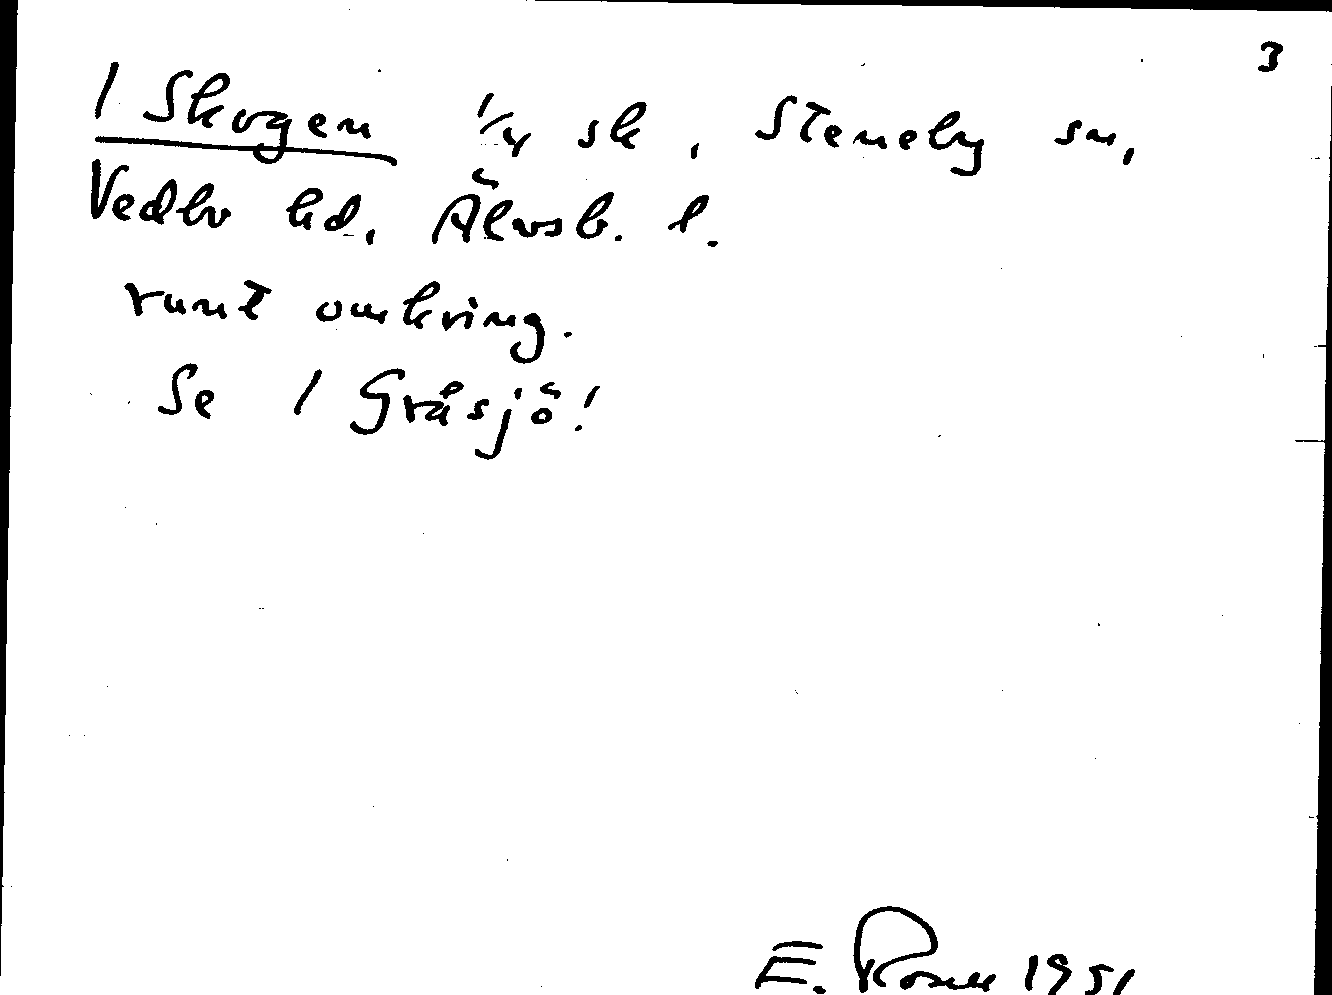 3
1 Skogen 1/4 sk, Steneby sn,
Vedbo hd, Älvsb. l.
runt omkring.
Se 1 Gråsjö!
E. Rosell 1951